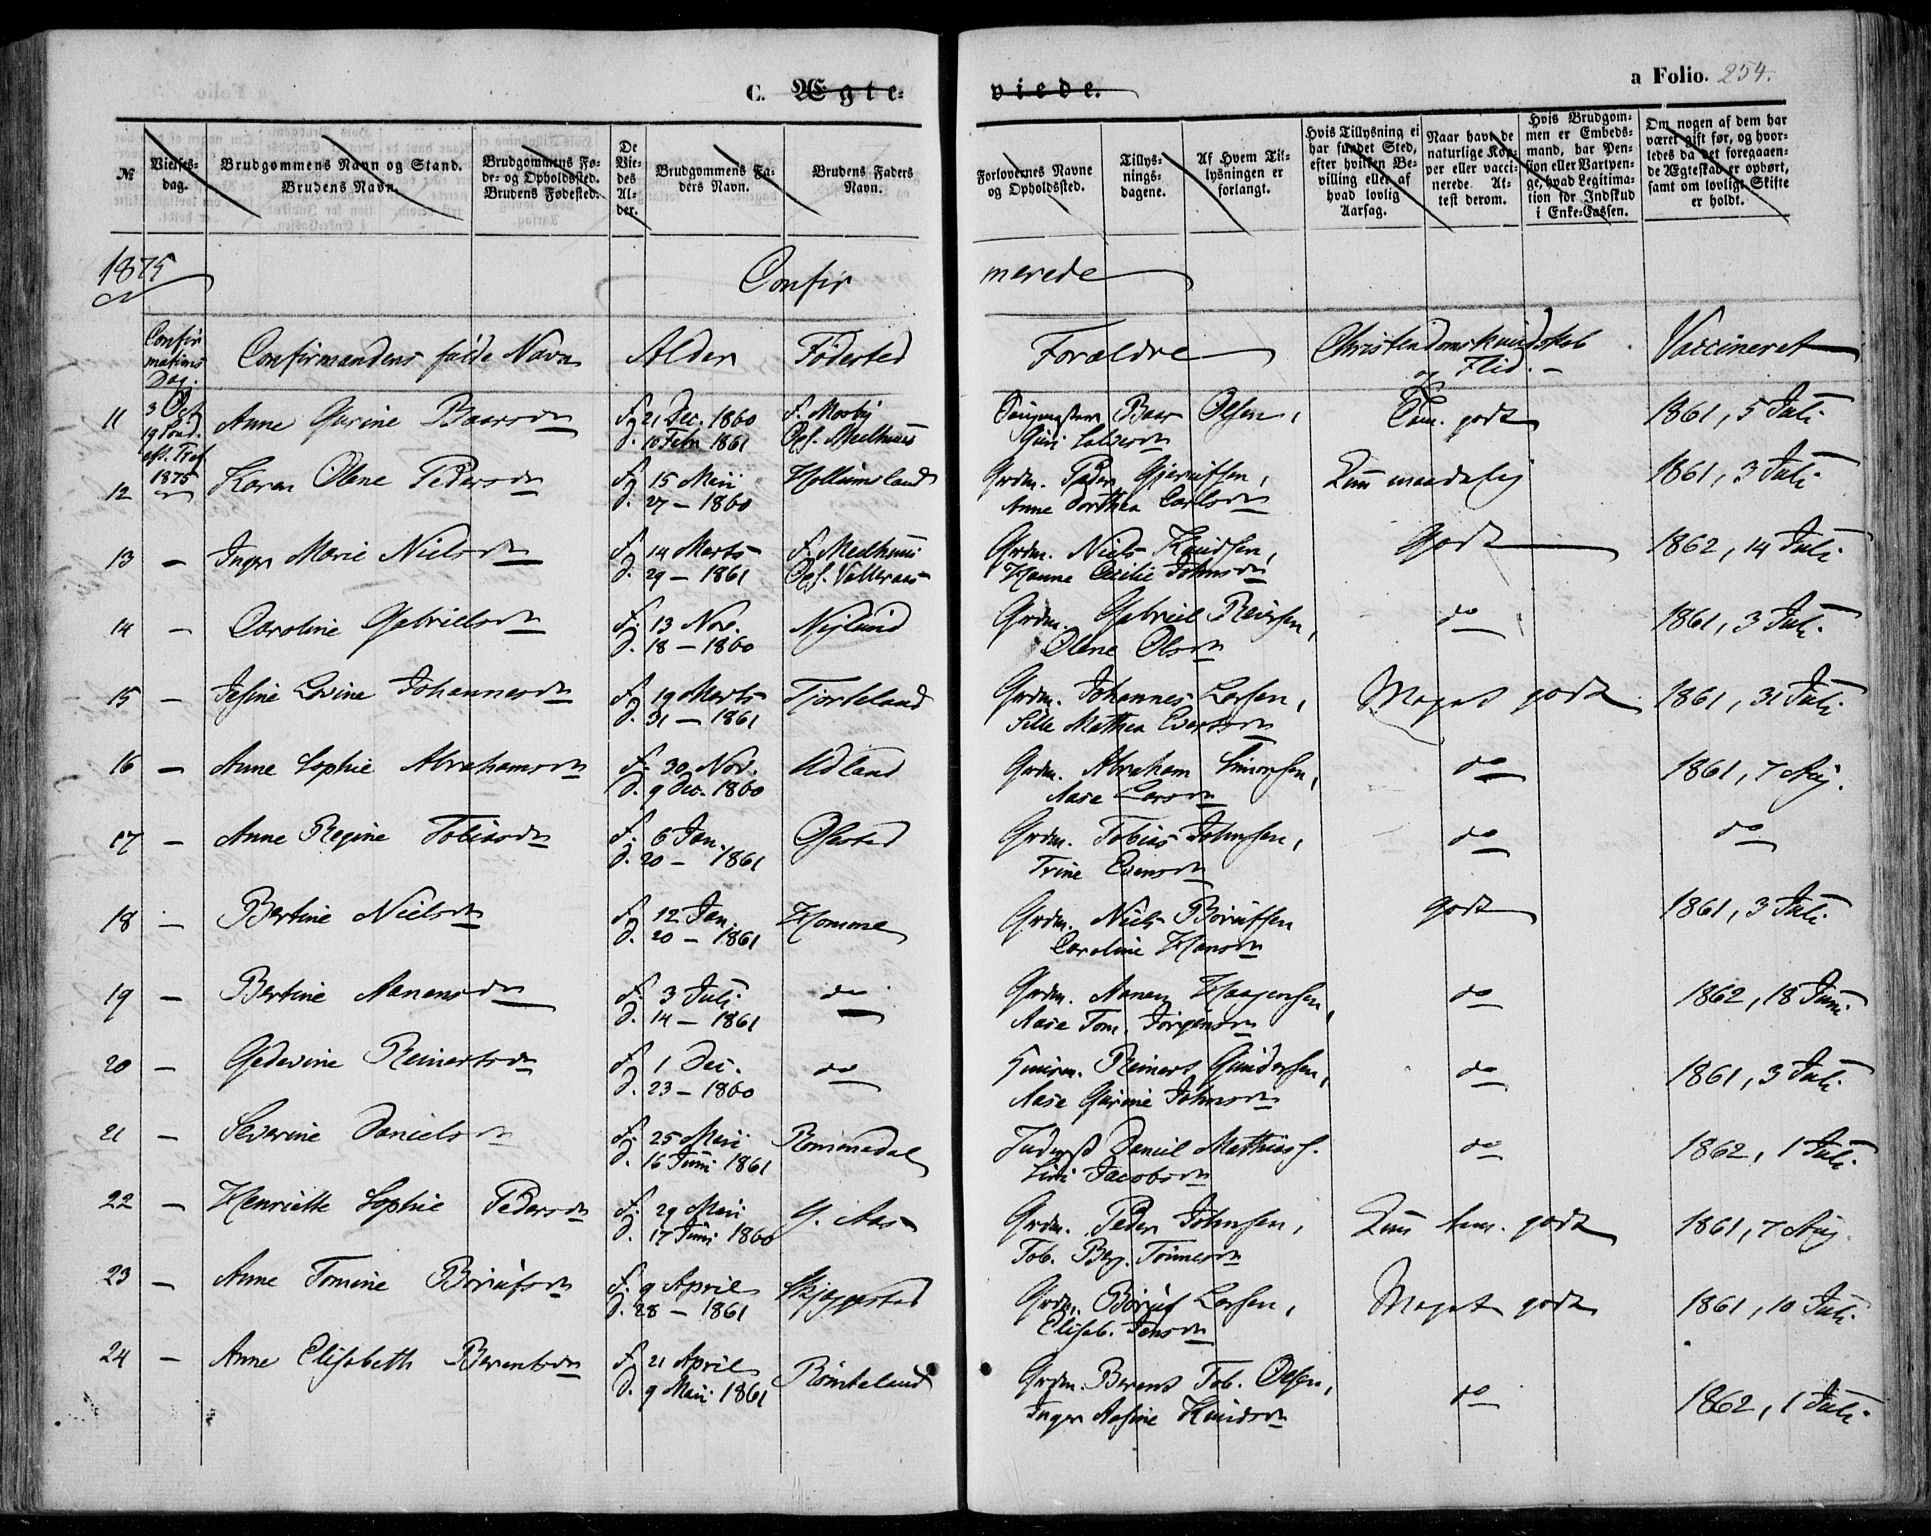 C. Ægte-
viede.
a Folio. 254.
№
Vielses-
dag.
Brudgommens Navn og Stand.
Brudens Navn.
Brudgommens Fø-
de- og Opholdssted.
Brudens Fødested.
De
Vie-
des
Al-
der.
Brudgommens Fa-
ders Navn.
Brudens Faders
Navn.
Forlovernes Navne
og Opholdssted.
Tillys-
nings-
dagene.
Af Hvem Til-
lysningen er
forlangt.
Hvis Tillysning ei
har fundet Sted,
efter hvilken Be-
villing eller af
hvad lovlig
Aarsag.
Naar have de
naturlige Kop-
per eller vacci-
nerede. At-
test derom.
Hvis Brudgom-
men er Embeds-
mand, har Pen-
sion eller Vartpen-
ge, hvad Legitima-
tion for Indskud
i Enke-Cassen.
Om nogen af dem har
været gift før, og hvor-
ledes da det foregaaen-
de Ægteskab er ophørt,
samt om lovligt Skifte
er holdt.
1875
Confir
merede
Confir
mations
Dag.
Confirmandens fulde Navn
Alder
Fødested
Forældre
Christendomskundskab
og Flid.
Vaccineret
11 3 Oct. Anne Gurine Baarsdn f. 21 Dec. 1860 f. Mosby Baar Olsen, Tem. godt 1861, 5 Juli
19 Sønd. d. 10 Febr. 1861 Opf. Meelhuus Guri
eft. Tref.
1875
12 Karen Olene Pedersdn f. 15 Mai Hollumsland Grdm. Peder Gjerulfsen, Kun maadelig 1861, 3 Juli
d. 27 – 1860 Anne Dorthea Carlsdn
13 – Inger Marie Nielsdn f. 14 Marts f. Meelhuus Grdm. Niels Knudsen, Godt 1862, 14 Juli
d. 29 – 1861 Opf. Valleraas Hanne Cecilie Johnsdn
14 – Caroline Gabrielsdn f. 13 Nov. Nylund Grdm. Gabriel Reiersen, do 1861, 3 Juli
d. 18 – 1860 Olene Olsdn
15 – Jesine Lovine Johannesdn f. 19 Marts Tjorteland Grdm. Johannes Larsen, Meget godt 1861, 31 Juli
d. 31 – 1861 Sille Mathea Evertsdn
16 – Anne Sophie Abrahamsdn f. 30 Nov. Udland Grdm. Abraham Simonsen, do 1861, 7 Aug.
d. 9 Dec. 1860 Aase Larsdn
17 – Anne Regine Tobiasdn f. 6 Jan. Ofsted Grdm. Tobias Johnsen, do do
d. 20 – 1861 Trine Evensdn
18 – Bertine Nielsdn f. 12 Jan. Homme Grdm. Niels Børulfsen godt 1861, 3 Juli
d. 20 – 1861 Caroline Hansdn
19 – Bertine Aanensdn f. 3 Juli do Grdm. Aanen Haagensen, do 1862, 18 Juni
d. 14 – 1861 Aase Tom. Jørgensdn
20 – Gedevine Reinertsdn f. 1 Dec. do Huusm. Reinert Gundersen, do 1861, 3 Juli
d. 23 – 1860 Aase Gurine Johnsdn
21 – Severine Danielsdn f. 25 Mai Rommedal Inderst Daniel Mathiass. do 1862, 1 Juli
d. 16 Juni 1861 Jacobsdn
22 – Henriette Sophie Pedersdn f. 29 Mai Y. Aas Grdm. Peder Johnsen, Kun tem. godt 1861, 7 Aug.
d. 17 Juni 1860 Tob. Berg. Tønnesdn
23 – Anne Tomine Børulfsdn f. 9 April Skjeggestad Grdm. Børulf Larsen, Meget godt 1861, 10 Juli
d. 28 – 1861 Elisab. Jensdn
24 – Anne Elisabeth Berentsdn f. 21 April Rømteland Grdm. Berent Tob. Olsen, do 1862, 1 Juli
d. 9 Mai 1861 Inger Aasine Knudsdn